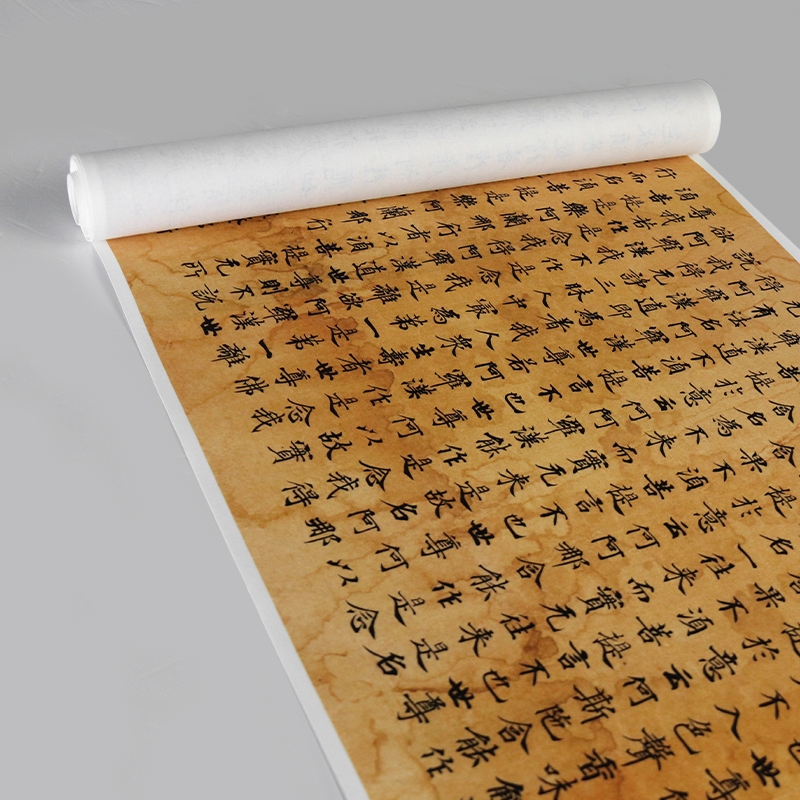 入色聲香味觸
於意云何斯陀含能作
須菩提言不也世尊
名一往來而實无往來是名
於意云何阿那含能作是念
果不須菩提言不也世尊何以
含名為不來而實无來是故名阿那
菩提於意云何阿羅漢能作是念我得
羅漢道不須菩提言不也世尊何以故實
无有法名阿羅漢世尊若阿羅漢作是念我
得阿羅漢道即為著我人眾生壽者世尊佛
說我得无諍三昧人中最為第一是第一離
欲阿羅漢我不作是念我是離欲阿羅漢世
尊我若作是念我得阿羅漢道世尊則說
須菩提是樂阿蘭那行者以須菩提實无所
行而名須菩提是樂阿蘭那行